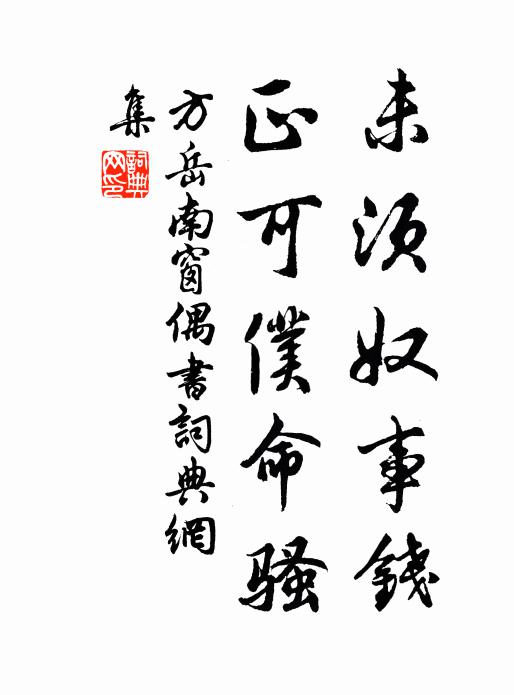 未須奴事錢
正可僕命騷
方岳南窗偶書詞典網
集
詞典
网印